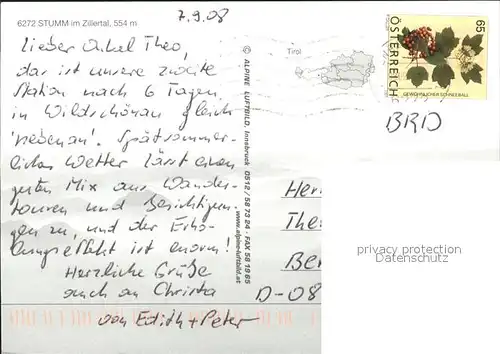 6272 STUMM im Zillertal, 554 m
7.9.08
Lieber Onkel Theo,
das ist unsere zweite
Station nach 6 Tagen
in Wildschönau gleich
'nebenan'. Spätsommer-
liches Wetter lässt einen
guten Mix aus Wander-
touren und Besichtigun-
gen zu, und der Erho-
lungseffekt ist enorm!
Herzliche Grüße
auch an Christa
von Edith + Peter
© ALPINE LUFTBILD, Innsbruck 0512 / 58 73 24 · FAX 58 19 65
www.alpine-luftbild.at
Tirol
ÖSTERREICH
65
GEWÖHNLICHER SCHNEEBALL
BRD
Her
The
Ber
D-08
privacy protection
Datenschutz